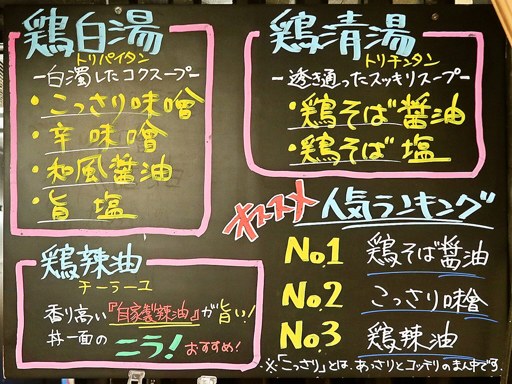 鶏白湯
トリパイタン
ー白濁したコクスープー
・こっさり味噌
・辛味噌
・和風醤油
・旨塩
鶏清湯
トリチンタン
ー透き通ったスッキリスープー
・鶏そば醤油
・鶏そば塩
オススメ 人気ランキング
No.1 鶏そば醤油
No.2 こっさり味噌
No.3 鶏辣油
※「こっさり」とは、あっさりとコッテリのまん中です。
鶏辣油
チーラーユ
香り高い『自家製辣油』が旨い!
丼一面のニラ!おすすめ!